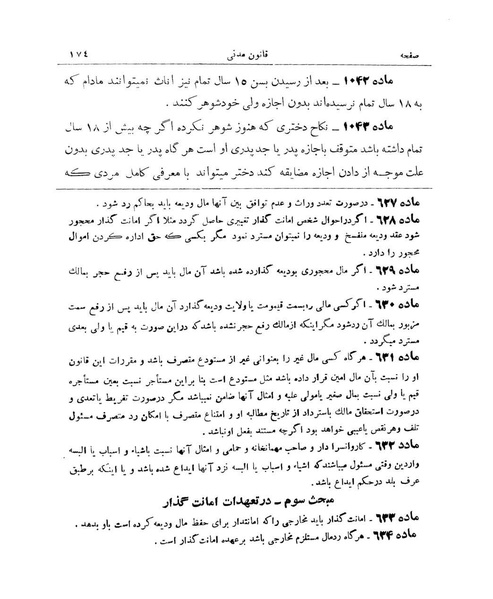 صفحه قانون مدنی ۱۷۴
ماده ۱۰۴۲ - بعد از رسیدن بسن ۱۵ سال تمام نیز اناث نمیتوانند مادام که
به ۱۸ سال تمام نرسیده‌اند بدون اجازه ولی خودشوهر کنند.
ماده ۱۰۴۳ - نکاح دختری که هنوز شوهر نکرده اگر چه بیش از ۱۸ سال
تمام داشته باشد متوقف باجازه پدر یا جدپدری او است هر گاه پدر یا جد پدری بدون
علت موجه از دادن اجازه مضایقه کند دختر میتواند با معرفی کامل مردی که
ماده ۶۲۷ - درصورت تعدد وراث و عدم توافق بین آنها مال ودیعه باید بحاکم رد شود.
ماده ۶۲۸ - اگر دراحوال شخص امانت گذار تغییری حاصل گردد مثلا اگر امانت گذار محجور
شود عقد ودیعه منفسخ و ودیعه را نمیتوان مسترد نمود مگر بکسی که حق اداره کردن اموال
محجور را دارد.
ماده ۶۲۹ - اگر مال محجوری بودیعه گذارده شده باشد آن مال باید پس از رفع حجر بمالك
مسترد شود.
ماده ۶۳۰ - اگرکسی مالی رابسمت قیمومت یاولایت ودیعه‌گذارد آن مال باید پس از رفع سمت
مزبور بمالك آن ردشود مگراینکه ازمالك رفع حجرنشده باشدکه دراین صورت به قیم یا ولی بعدی
مسترد میگردد.
ماده ۶۳۱ - هرگاه کسی مال غیر را بعنوانی غیر از مستودع متصرف باشد و مقررات این قانون
او را نسبت بآن مال امین قرار داده باشد مثل مستودع است بنا براین مستأجر نسبت بعین مستأجره
قیم یا ولی نسبت بمال صغیر یامولی علیه و امثال آنها ضامن نمیباشد مگر درصورت تفریط یاتعدی و
درصورت استحقاق مالك باسترداد از تاریخ مطالبه او و امتناع متصرف با امکان رد متصرف مسئول
تلف وهرنقص یاعیبی خواهد بود اگرچه مستند بفعل اونباشد.
ماده ۶۳۲ - کاروانسرا دار و صاحب مهمانخانه و حمامی و امثال آنها نسبت باشیاء و اسباب یا البسه
واردین وقتی مسئول میباشندکه اشیاء و اسباب یا البسه نزد آنها ایداع شده باشد و یا اینکه برطبق
عرف بلد درحکم ایداع باشد.
مبحث سوم - درتعهدات امانت گذار
ماده ۶۳۳ - امانت گذار باید مخارجی راکه امانتدار برای حفظ مال ودیعه کرده است باو بدهد.
ماده ۶۳۴ - هرگاه ردمال مستلزم مخارجی باشد برعهده امانت‌گذار است.